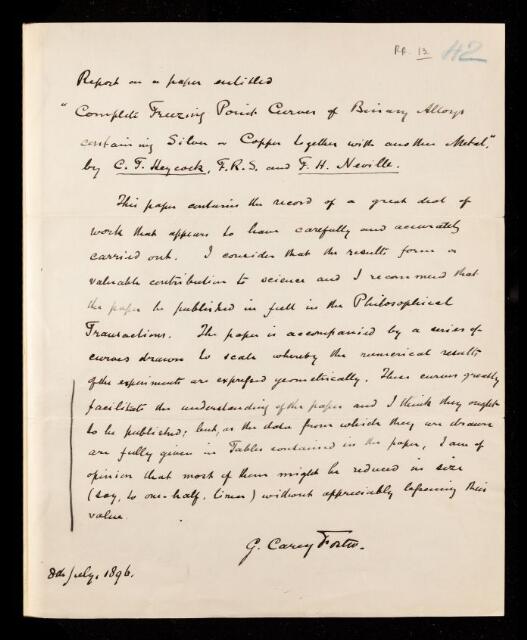 RR. 13 42
Report on a paper entitled
"Complete Freezing Point Curves of Binary Alloys
containing Silver or Copper together with another Metal,"
by C. T. Heycock, F.R.S. and F. H. Neville.
This paper contains the record of a great deal of
work that appears to have carefully and accurately
carried out. I consider that the results form a
valuable contribution to science and I recommend that
the paper be published in full in the Philosophical
Transactions. The paper is accompanied by a series of
curves drawn to scale whereby the numerical results
of the experiments are expressed geometrically. These curves greatly
facilitate the understanding of the paper and I think they ought
to be published; but, as the data from which they are drawn
are fully given in Tables contained in the paper, I am of
opinion that most of them might be reduced in size
(say, to one-half, linear) without appreciably lessening their
value.
G. Carey Foster.
8th July, 1896.